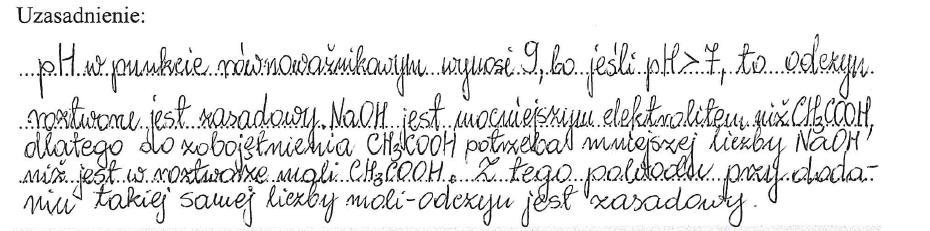 Uzasadnienie:
pH w punkcie równoważnikowym wynosi 9, bo jeśli pH > 7, to odczyn
roztworu jest zasadowy. NaOH jest mocniejszym elektrolitem niż CH₃COOH,
dlatego do zobojętnienia CH₃COOH potrzeba mniejszej liczby NaOH
niż jest w roztworze moli CH₃COOH. Z tego powodu przy doda-
niu takiej samej liczby moli - odczyn jest zasadowy.